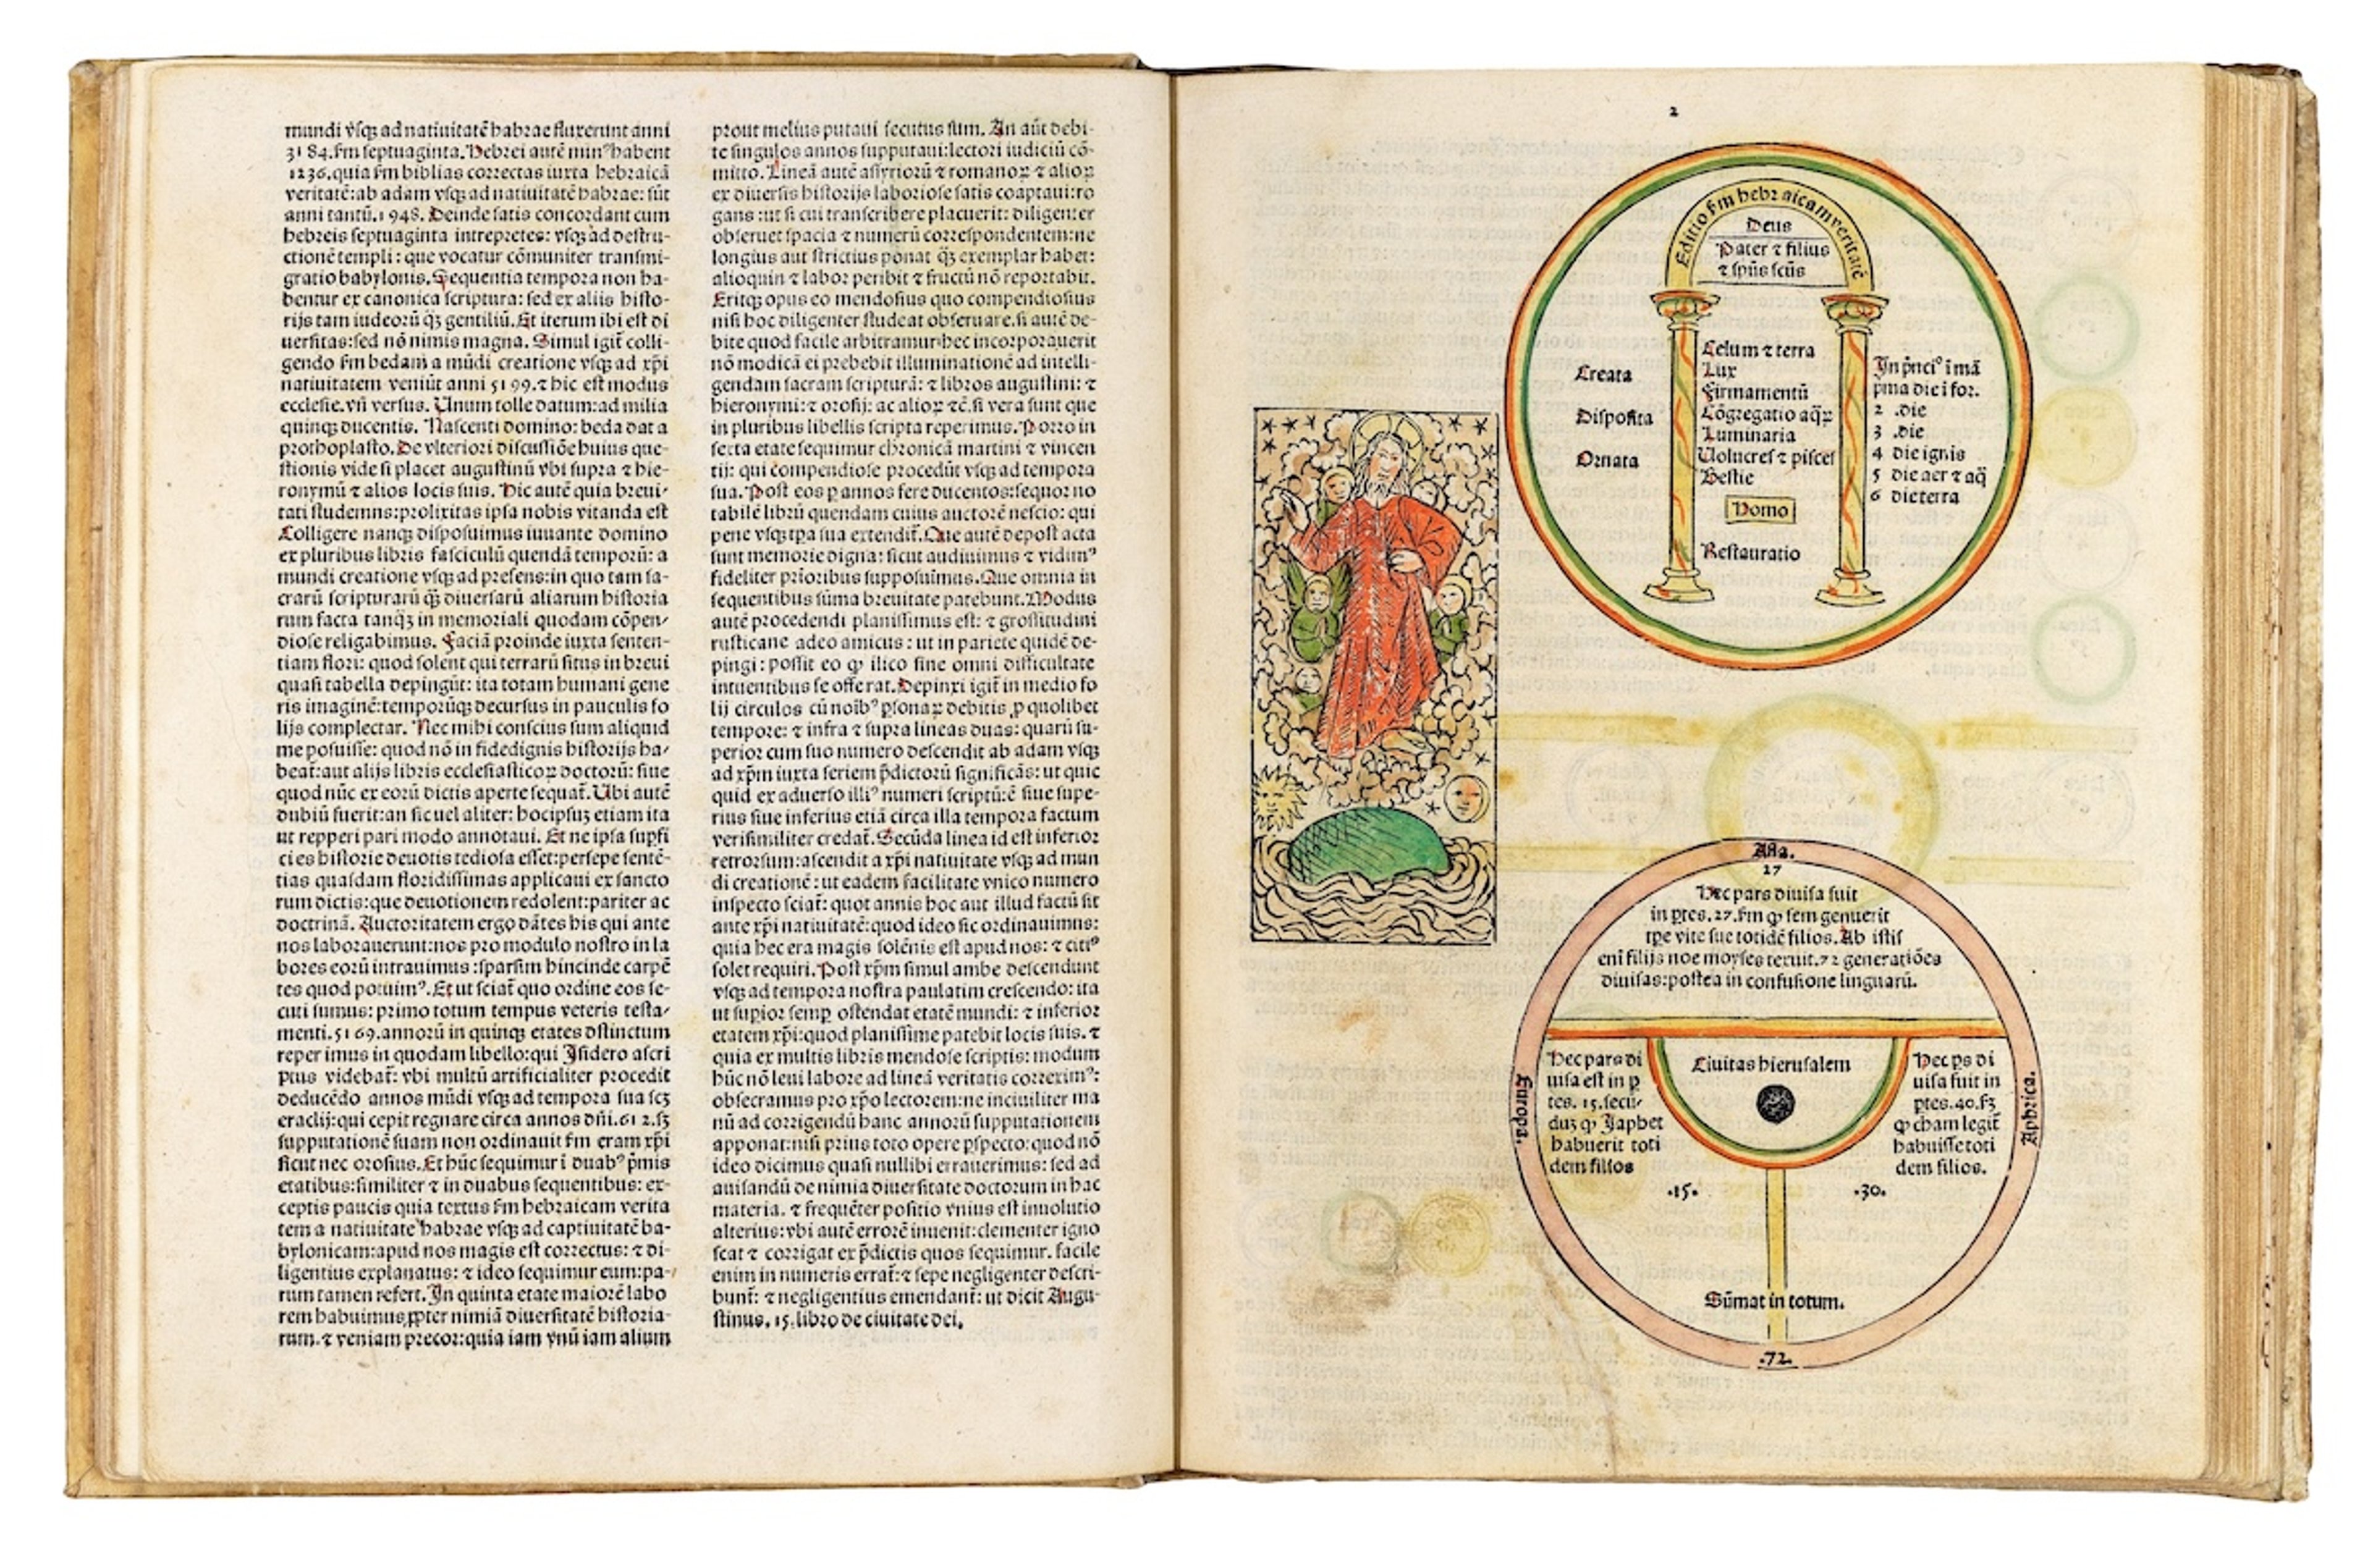 mundi vſqꝫ ad natiuitatē habrae fluxerunt anni
3184. ẜm septuaginta. Hebrei autē minꝰ habent
1236. quia ẜm biblias correctas iuxta hebraicā
veritatē: ab adam vſqꝫ ad natiuitatē habrae: sūt
anni tantū. 1948. Deinde ſatis concordant cum
hebreis ſeptuaginta intrepretes: vſqꝫ ad deſtru-
ctionē templi: que vocatur cōmuniter tranſmi-
gratio babylonis. Sequentia tempora non ha-
bentur ex canonica ſcriptura: ſed ex aliis hiſto-
rijs tam iudeorū qꝫ̄ gentiliū. Et iterum ibi eſt di
uerſitas: ſed nō nimis magna. Simul igit̄ colli-
gendo ẜm bedam a mūdi creatione vſqꝫ ad xp̄i
natiuitatem veniūt anni 5199. ⁊ hic eſt modus
eccleſie. vn̄ verſus. Unum tolle datum: ad milia
quinqꝫ ducentis. Naſcenti domino: beda dat a
prothoplaſto. De vlteriori diſcuſſiōe huius que-
ſtionis vide ſi placet auguſtinū vbi ſupra ⁊ hie-
ronymū ⁊ alios locis ſuis. Hic autē quia breui-
tati ſtudemns: prolixitas ipſa nobis vitanda eſt
Colligere nanqꝫ diſpoſuimus iuuante domino
ex pluribus libris faſciculū quendā temporū: a
mundi creatione vſqꝫ ad preſens: in quo tam ſa-
crarū ſcripturarū qꝫ̄ diuerſarū aliarum hiſtoria
rum facta tanqꝫ̄ in memoriali quodam cōpen-
dioſe religabimus. Faciā proinde iuxta ſenten-
tiam flori: quod ſolent qui terrarū ſitus in breui
quaſi tabella depingūt: ita totam humani gene
ris imaginē: temporūqꝫ decurſus in pauculis fo
lijs complectar. Nec mihi conſcius ſum aliquid
me poſuiſſe: quod nō in fidedignis hiſtorijs ha-
beat̄: aut alijs libris eccleſiaſticoꝝ doctorū: ſiue
quod nūc ex eorū dictis aperte ſequat̄. Ubi autē
dubiū fuerit: an ſic uel aliter: hoc ipſuꝫ etiam ita
ut repperi pari modo annotaui. Et ne ipſa ſup̄fi
cies hiſtorie deuotis tedioſa eſſet: perſepe ſentē-
tias quaſdam floridiſſimas applicaui ex ſancto
rum dictis: que deuotionem redolent: pariter ac
doctrinā. Auctoritatem ergo dātes his qui ante
nos laborauerunt: nos pro modulo noſtro in la
bores eorū intrauimus: ſparſim hincinde carpē
tes quod potuimꝰ. Et ut ſciat̄ quo ordine eos ſe-
cuti ſumus: primo totum tempus veteris teſta-
menti. 5169. annorū in quinqꝫ etates dſtinctum
reperimus in quodam libello: qui Iſidero aſcri
ptus videbat̄: vbi multū artificialiter procedit
deducēdo annos mūdi vſqꝫ ad tempora ſua ſcꝫ
eraclij: qui cepit regnare circa annos dn̄i. 612. ſꝫ
ſupputationē ſuam non ordinauit ẜm eram xp̄i
ſicut nec oroſius. Et hūc ſequimur ī duabꝰ p̄mis
etatibus: ſimiliter ⁊ in duabus ſequentibus: ex-
ceptis paucis quia textus ẜm hebraicam verita
tem a natiuitate habrae vſqꝫ ad captiuitatē ba-
bylonicam: apud nos magis eſt correctus: ⁊ di-
ligentius explanatus: ⁊ ideo ſequimur eum: pa-
rum tamen refert. In quinta etate maiorē labo
rem habuimus ꝓpter nimiā diuerſitatē hiſtoria-
rum. ⁊ veniam precor: quia iam vnū iam alium
prout melius putaui ſecutus ſum. An aūt debi-
te ſingulos annos ſupputaui: lectori iudiciū cō-
mitto. Lineā autē aſſyriorū ⁊ romanoꝝ ⁊ alioꝝ
ex diuerſis hiſtorijs laborioſe ſatis coaptaui: ro
gans: ut ſi cui tranſcribere placuerit: diligenter
obſeruet ſpacia ⁊ numerū correſpondentem: ne
longius aut ſtrictius ponat qꝫ̄ exemplar habet:
alioquin ⁊ labor peribit ⁊ fructū nō reportabit.
Eritqꝫ opus eo mendoſius quo compendioſius
niſi hoc diligenter ſtudeat obſeruare. ſi autē de-
bite quod facile arbitramur: hec incorporauerit
nō modicā ei prebebit illuminationē ad intelli-
gendam ſacram ſcripturā: ⁊ libros auguſtini: ⁊
hieronymi: ⁊ oroſij: ac alioꝝ ⁊c. ſi vera ſunt que
in pluribus libellis ſcripta reperimus. Porro in
ſexta etate ſequimur chronicā martini ⁊ vincen
tij: qui compendioſe procedūt vſqꝫ ad tempora
ſua. Poſt eos ꝑ annos fere ducentos: ſequor no
tabilē librū quendam cuius auctorē neſcio: qui
pene vſqꝫ tp̄a ſua extendit̄. Que autē depoſt acta
ſunt memorie digna: ſicut audiuimus ⁊ vidimꝰ
fideliter prioribus ſuppoſuimus. Que omnia in
ſequentibus ſūma breuitate patebunt. Modus
autē procedendi planiſſimus eſt: ⁊ groſſitudini
ruſticane adeo amicus: ut in pariete quidē de-
pingi: poſſit eo ꝙ ilico ſine omni difficultate
intuentibus ſe offerat. Depinxi igit̄ in medio fo
lij circulos cū noībꝰ ꝑſonaꝝ debitis ꝓ quolibet
tempore: ⁊ infra ⁊ ſupra lineas duas: quarū ſu-
perior cum ſuo numero deſcendit ab adam vſqꝫ
ad xp̄m iuxta ſeriem p̄dictorū ſignificās: ut quic
quid ex aduerſo illiꝰ numeri ſcriptū: ē ſiue ſupe-
rius ſiue inferius etiā circa illa tempora factum
veriſimiliter credat̄. Secūda linea id eſt inferior
retrorſum: aſcendit a xp̄i natiuitate vſqꝫ ad mun
di creationē: ut eadem facilitate vnico numero
inſpecto ſciat̄: quot annis hoc aut illud factū ſit
ante xp̄i natiuitatē: quod ideo ſic ordinauimus:
quia hec era magis ſolēnis eſt apud nos: ⁊ citiꝰ
ſolet requiri. Poſt xp̄m ſimul ambe deſcendunt
vſqꝫ ad tempora noſtra paulatim creſcendo: ita
ut ſuꝑior ſemꝑ oſtendat etatē mundi: ⁊ inferior
etatem xp̄i: quod planiſſime patebit locis ſuis. ⁊
quia ex multis libris mendoſe ſcriptis: modum
hūc nō leui labore ad lineā veritatis correximꝰ:
obſecramus pro xp̄o lectorem: ne inciuiliter ma
nū ad corrigendū hanc annorū ſupputationem
apponat: niſi prius toto opere ꝑſpecto: quod nō
ideo dicimus quaſi nullibi errauerimus: ſed ad
auiſandū de nimia diuerſitate doctorum in hac
materia. ⁊ frequēter poſitio vnius eſt inuolutio
alterius: vbi autē errorē inuenit: clementer igno
ſcat ⁊ corrigat ex p̄dictis quos ſequimur. facile
enim in numeris errat̄: ⁊ ſepe negligenter deſcri-
bunt̄: ⁊ negligentius emendant̄: ut dicit Augu-
ſtinus. 15. libro de ciuitate dei.
2
Editio ẜm hebraicam veritatē
Deus
Pater ⁊ filius
⁊ ſpūs ſcūs
Creata
Diſpoſita
Ornata
Celum ⁊ terra
Lux
Firmamentū
Cōgregatio aqꝝ̄
Luminaria
Uolucres ⁊ piſces
Beſtie
Homo
Reſtauratio
In p̄nciº ī mā
pma die i for.
2 .die
3 .die
4 die ignis
5 die aer ⁊ aq̄
6 die terra
Aſia.
27
Hec pars diuiſa fuit
in ꝑtes. 27. ẜm ꝙ ſem genuerit
tp̄e vite ſue totidē filios. Ab iſtiſ
eni filijs noe moyſes texuit. 72 generatiōes
diuiſas: poſtea in confuſione linguarū.
Europa.
Hec pars di
uiſa eſt in ꝑ
tes. 15. ſecu-
duꝫ ꝙ Japhet
habuerit toti
dem filios
.15.
Ciuitas hieruſalem
Aphrica.
Hec ꝑs di
uiſa fuit in
ꝑtes. 40. ſꝫ
ꝙ cham legit̄
habuiſſe toti
dem filios.
.30.
Sūmat in totum.
.72.